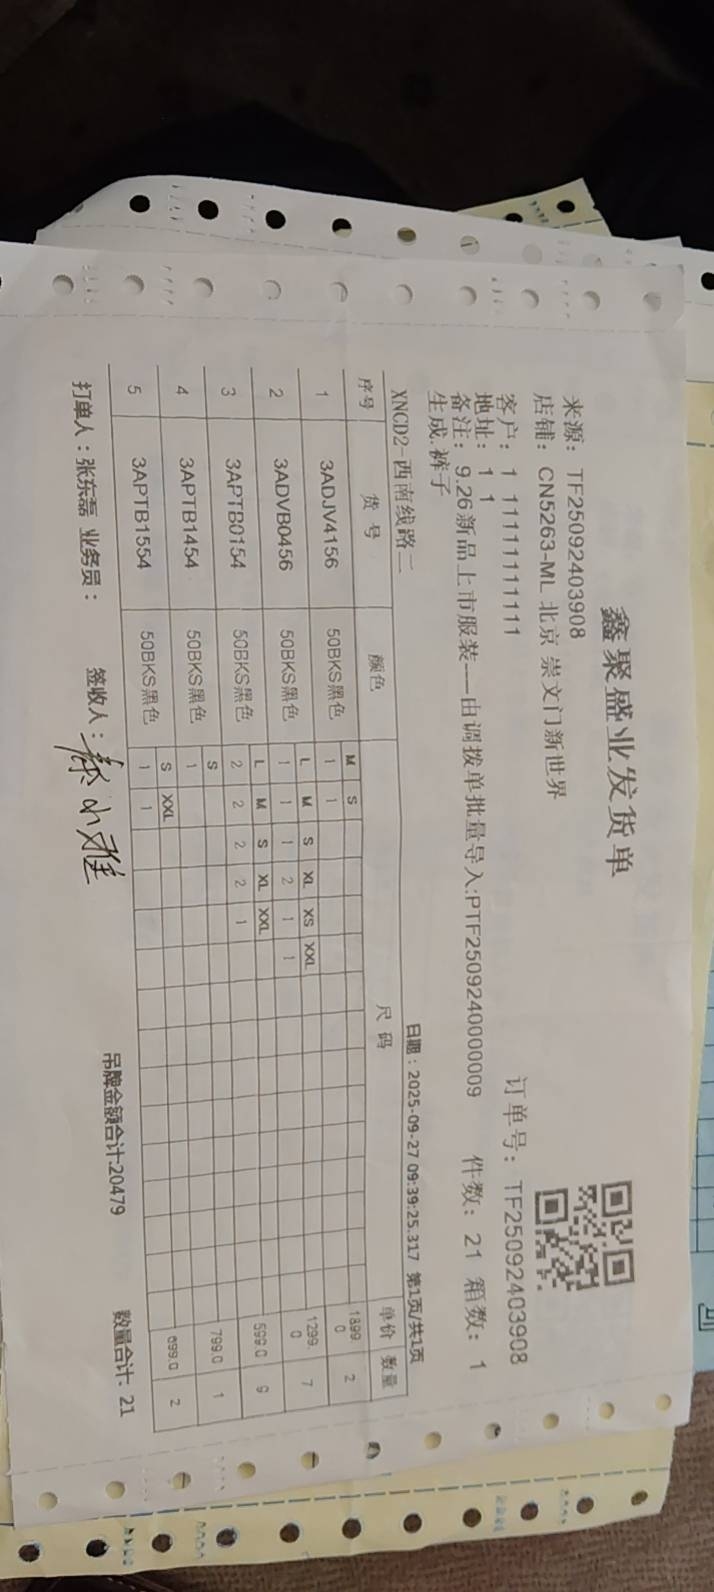 鑫聚盛业发货单
来源: TF25092403908
订单号: TF25092403908
店铺: CN5263-ML 北京 崇文门新世界
客户: 1 11111111111
地址: 1 1
件数: 21 箱数: 1
备注: 9.26新品上市服装——由调拨单批量导入:PTF2509240000009
生成.裤子
XNCD2-西南线路二
日期：2025-09-27 09:39:25.317 第1页/共1页
序号 货号 颜色 尺码 单价 数量
M S
1 3ADJV4156 50BKS黑色 1 1 1899.0 2
L M S XL XS XXL
2 3ADVB0456 50BKS黑色 1 1 1 2 1 1 1299.0 7
L M S XL XXL
3 3APTB0154 50BKS黑色 2 2 2 2 1 599.0 9
S
4 3APTB1454 50BKS黑色 1 799.0 1
S XXL
5 3APTB1554 50BKS黑色 1 1 699.0 2
打单人：张东磊 业务员： 签收人： 吊牌金额合计:20479 数量合计: 21